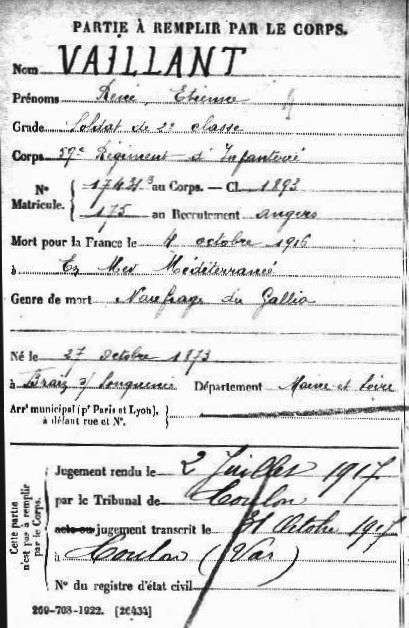 PARTIE À REMPLIR PAR LE CORPS.
Nom VAILLANT
Prénoms René, Etienne
Grade Soldat de 2e classe
Corps 59e Régiment d'Infanterie
N° 17431 au Corps. — Cl. 1893
Matricule. 175 au Recrutement Angers
Mort pour la France le 4 octobre 1916
à En Mer Méditerranée
Genre de mort Naufrage du Gallia
Né le 27 Octobre 1873
à Département Maine et Loire
Arrt municipal (pr Paris et Lyon),
à défaut rue et N°.
Cette partie n'est pas à remplir par le Corps.
Jugement rendu le 2 Juillet 1917
par le Tribunal de Toulon
acte ou jugement transcrit le 31 Octobre 1917
à Toulon (Var)
N° du registre d'état civil
269-708-1922. [26434]